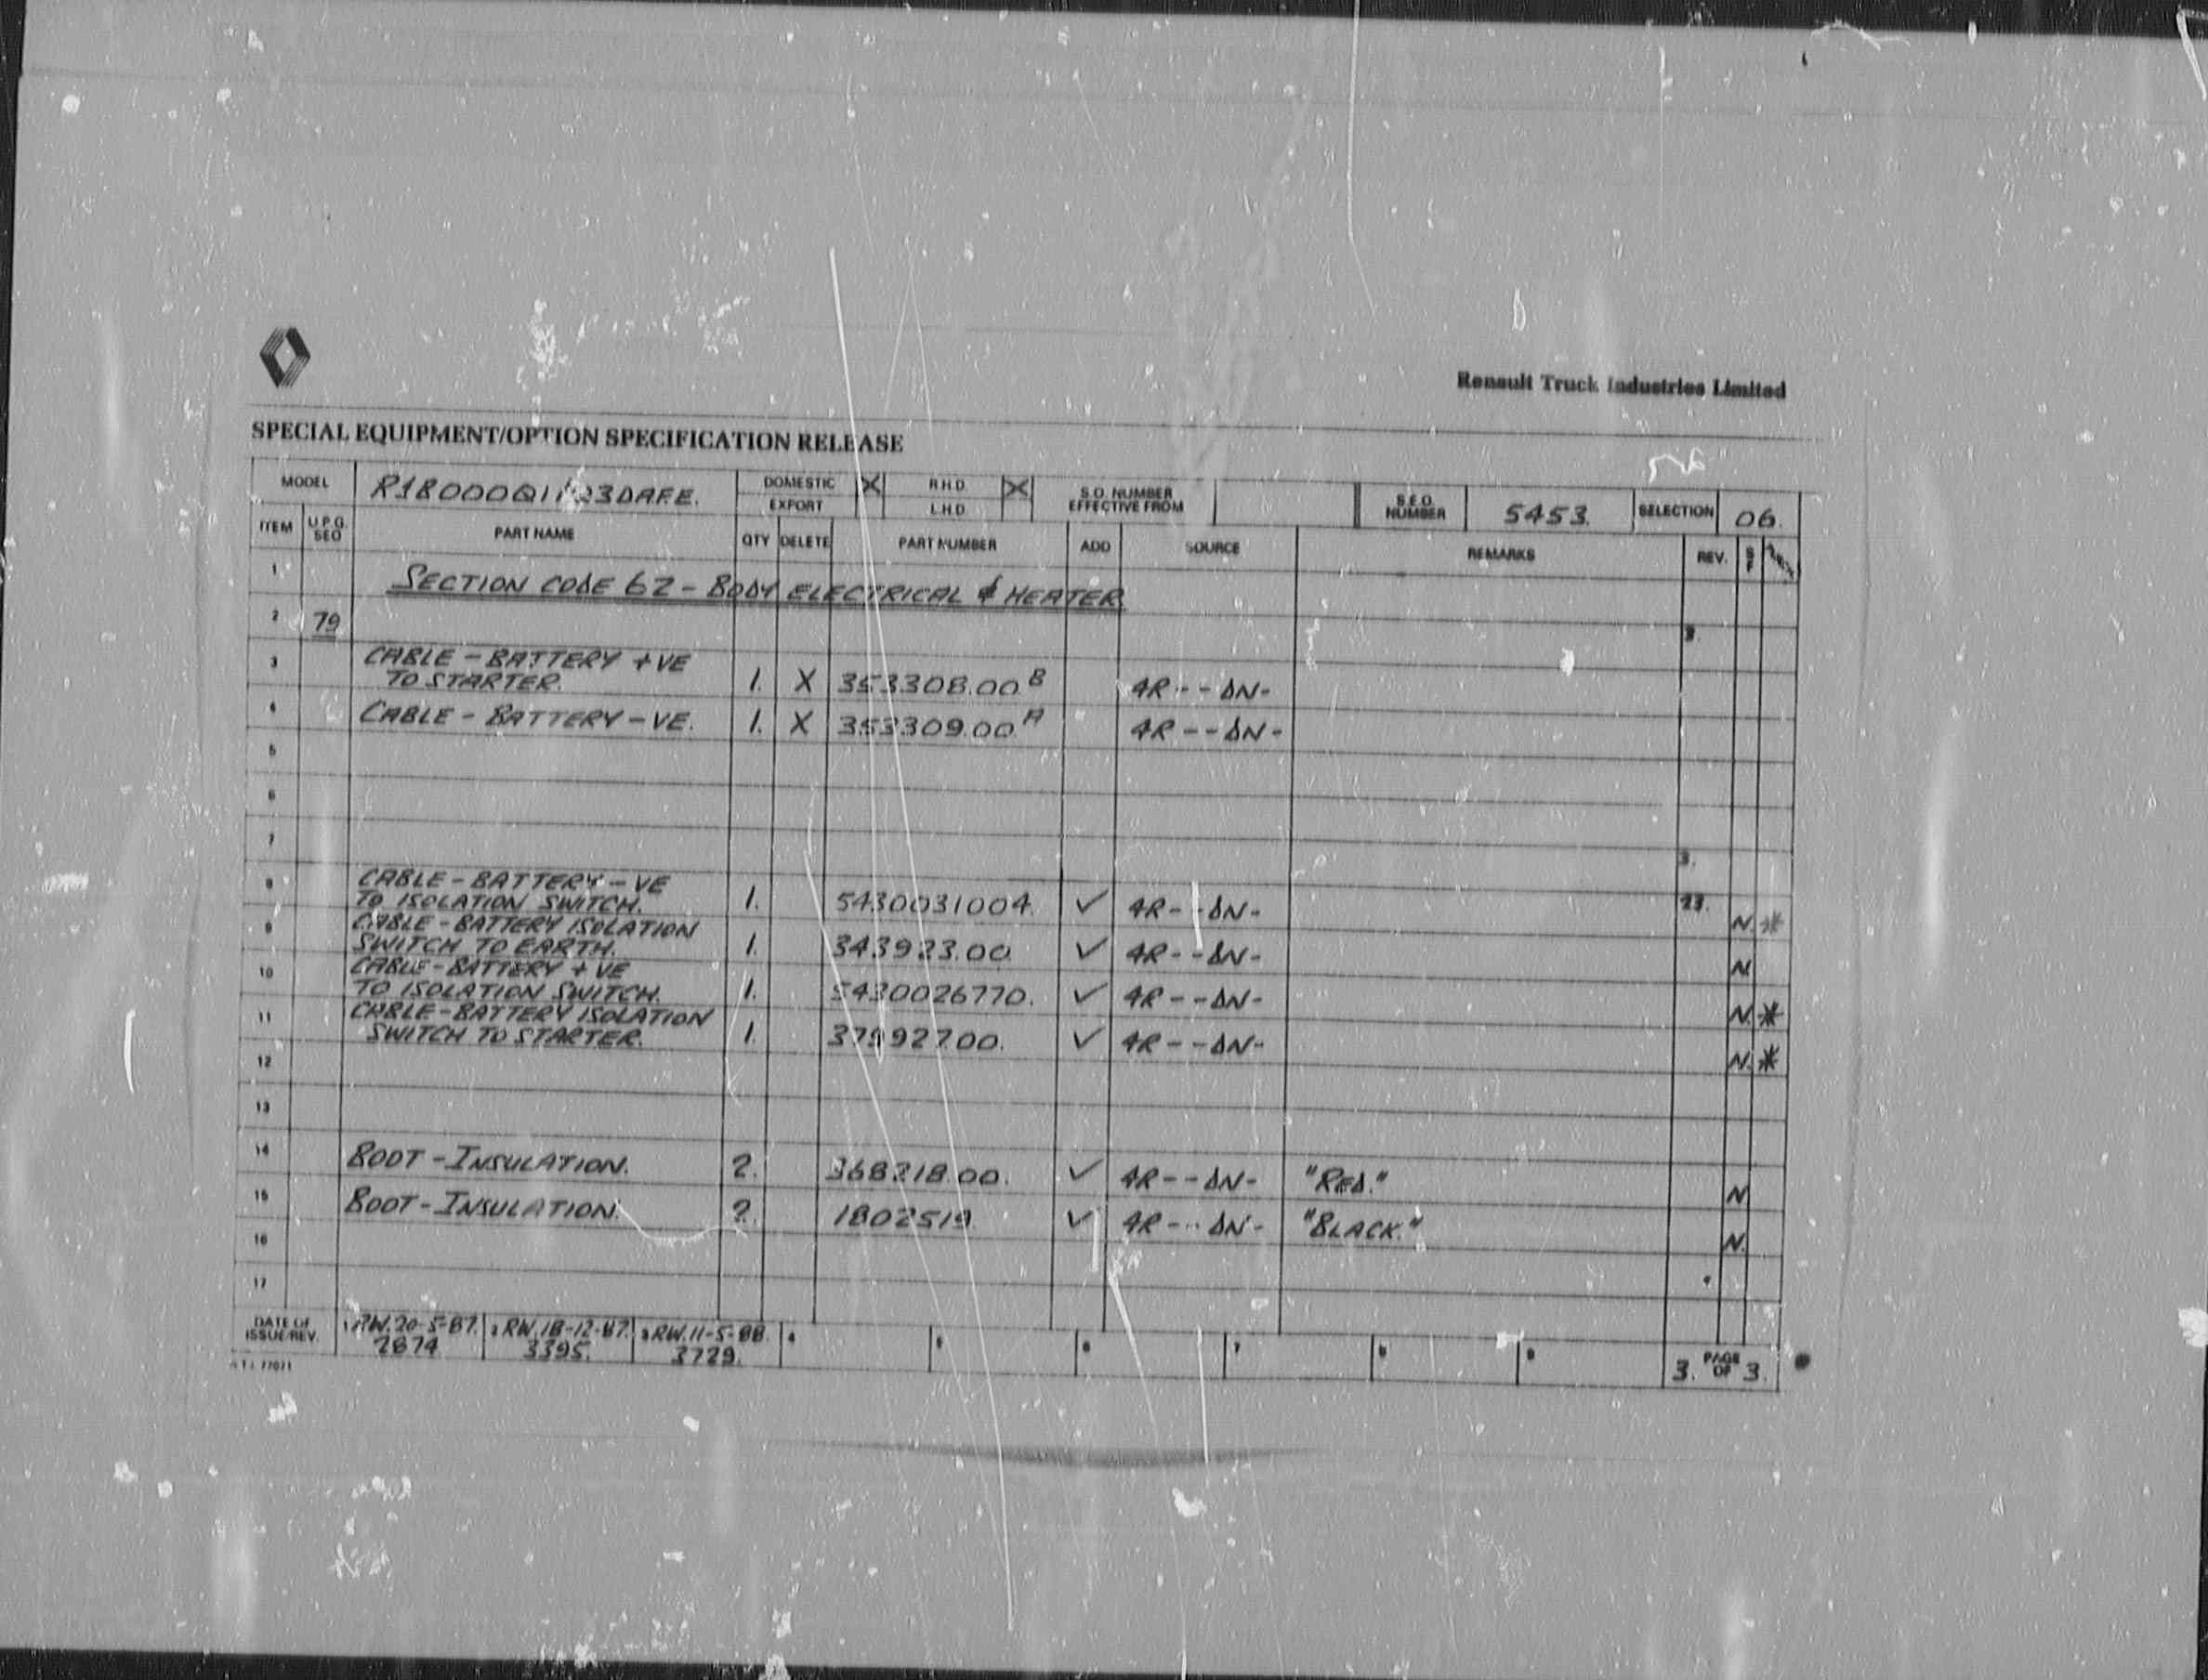 Renault Truck Industries Limited
SPECIAL EQUIPMENT/OPTION SPECIFICATION RELEASE
MODEL DOMESTIC X R.H.D. X S.O. NUMBER EFFECTIVE FROM S.E.O. NUMBER 5453. SELECTION 06.
EXPORT L.H.D.
ITEM U.P.G. SEQ PART NAME QTY DELETE PART NUMBER ADD SOURCE REMARKS REV. S F
1 SECTION CODE 62 - BODY ELECTRICAL & HEATER
2 79
3 CABLE - BATTERY +VE
TO STARTER. 1. X 353308.00 B 4R - - DN -
4 CABLE - BATTERY - VE. 1. X 353309.00 A 4R - - DN -
5
6
7
8 CABLE - BATTERY - VE
TO ISOLATION SWITCH. 1. 5430031004. ✓ 4R - - DN - N. *
9 CABLE - BATTERY ISOLATION
SWITCH TO EARTH. 1. 343923.00 ✓ 4R - - DN - N
10 CABLE - BATTERY + VE
TO ISOLATION SWITCH. 1. 5430026770. ✓ 4R - - DN - N. *
11 CABLE - BATTERY ISOLATION
SWITCH TO STARTER. 1. ✓ 4R - - DN - N. *
12
13
14 BOOT - INSULATION. 2. 368218.00. ✓ 4R - - DN - "RED." N
15 BOOT - INSULATION. 2. 1802519 ✓ 4R - - DN - "BLACK." N.
16
17
DATE OF ISSUE/REV. 1 RW. 20-5-87. 2 RW. 18-12-87. 3 RW. 11-5-88. 4 5 6 7 8 9 3. PAGE OF 3.
2874 3395. 3729.